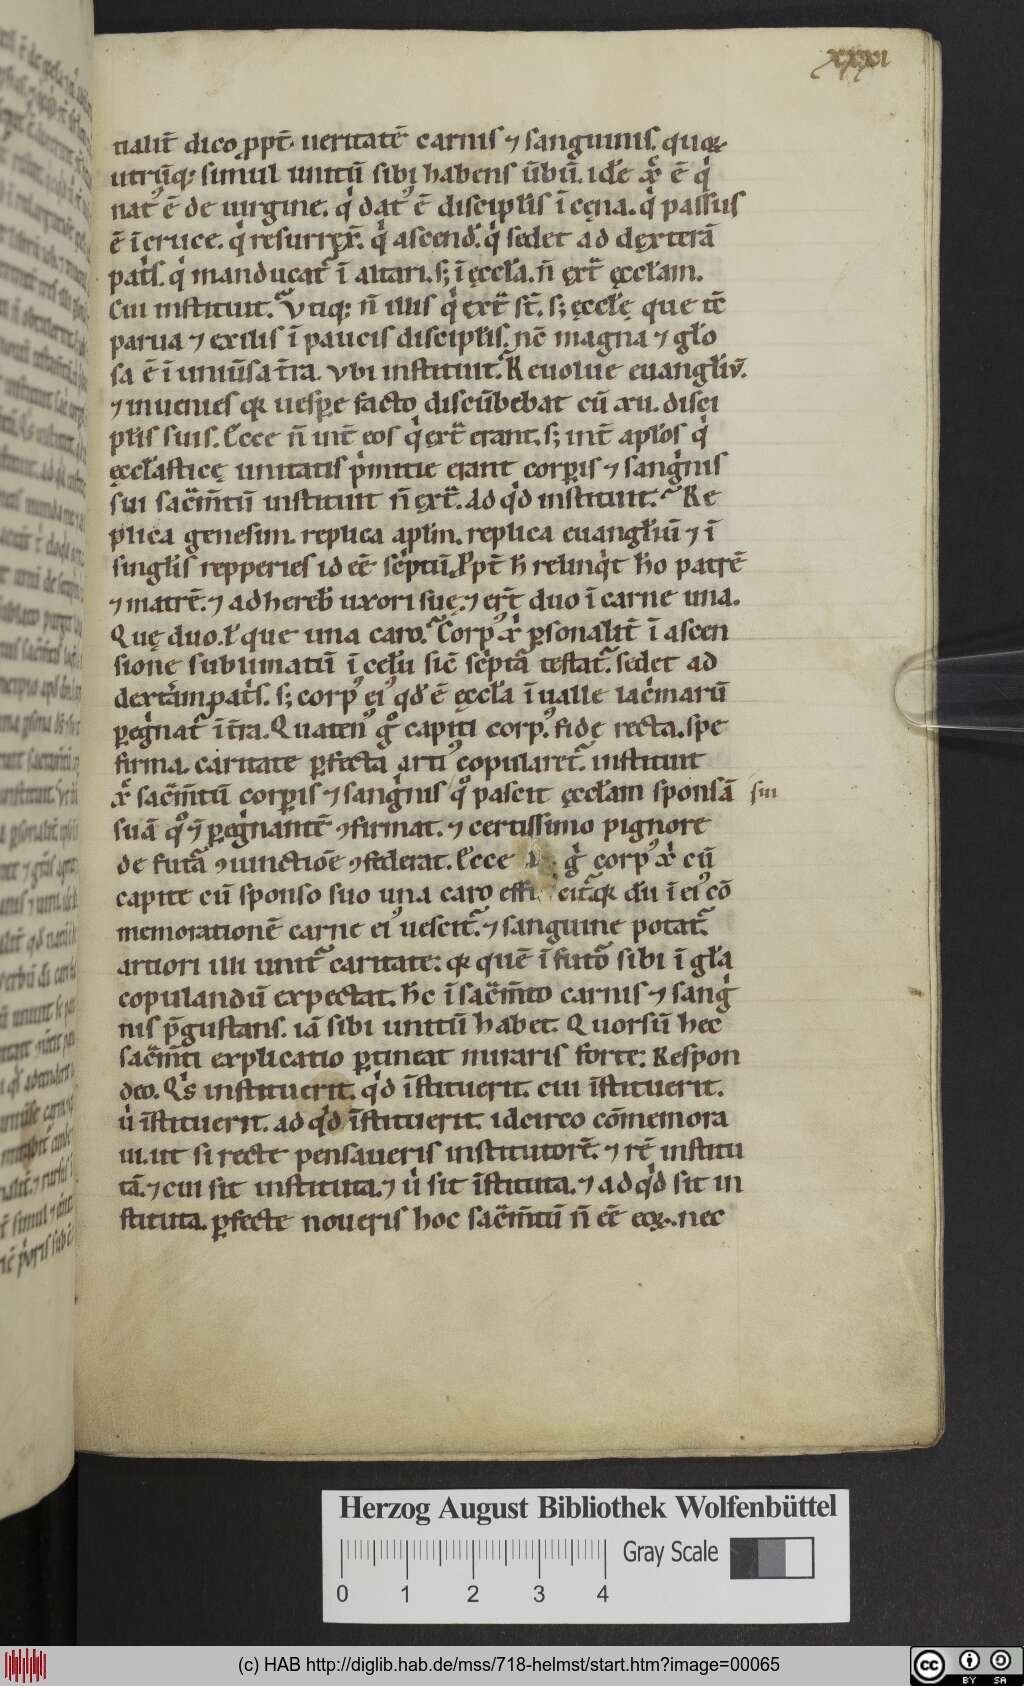 xxxi
tialit̄ dico ꝓpt̄ ueritatē carnis ⁊ sanguinis. quoꝝ
utrūq; simul unitū sibi habens ūbū. idē xp̄c ē q
nat᷒ ē de uirgine. q dat᷒ ē disciplis ī cęna. q passus
ē ī cruce. q resurrex̄. q ascend. q sedet ad dexterā
patis. q manducat᷑ ī altari. s; ī ęccła. n̄ ext᷑ ęccłam.
Cui instituit. Vtiq; n̄ illis q ext᷑ st̄. s; ęccłę que tc̄
parua ⁊ exilis ī paucis disciplis. nc̄ magna ⁊ glo
sa ē ī uniūsa t̄ra. Vbi instituit. Reuolue euangłiū.
⁊ inuenies qꝫ uespe facto discūbebat cū xii. disci
plis suis. Ecce n̄ int̄ eos q ext᷑ erant. s; int̄ aplos q
ęccłasticę unitatis pmitie erant corpis ⁊ sangnis
sui sacm̄tū instituit n̄ ext᷑. ad qd instituit. Re
plica genesim. replica aplm. replica euangłiū ⁊ ī
singlis repperies id ēē sc̄ptū. ꝓpt̄ h̄ relinqt hō patrē
⁊ matrē. ⁊ adhereb uxori suę. ⁊ ert̄ duo ī carne una.
Quę duo. ł que una caro. Corp᷒ xp̄i psonalit̄ ī ascen
sione sublimatū ī celū sic̄ sc̄pta testat᷑. sedet ad
dextam patis. s; corp᷒ ei᷒ qd ē ęccła ī ualle lacmarū
pegnat᷑ ī t̄ra. Quaten᷒ g capiti corp᷒. fide recta. spe
firma. caritate pfecta arti᷒ copularet᷑. instituit
xp̄c sacm̄tū corpis ⁊ sangnis q pascit ęccłam sponsā sui
suā q ⁊ pegnantē ꝯfirmat. ⁊ certissimo pignore
de futa ꝯiunctiōe ꝯfederat. Ecce g corp᷒ xp̄i cū
capite cū sponso suo una caro effi citqꝫ dū ī ei᷒ cō
memorationē carne ei᷒ uescit᷑. ⁊ sanguine potat᷑.
artiori illi unit᷑ caritate: qꝫ quē ī futo sibi ī gła
copulandū expectat. hc̄ ī sacm̄to carnis ⁊ sang
nis pgustans. iā sibi unitū habet. Quorsū hec
sacm̄ti explicatio ptineat miraris forte: Respon
deo. Qs instituerit. qd īstituerit. cui īstituerit.
u īstituerit. ad qd īstituerit. idcirco cōmemora
ui. ut si recte pensaueris institutorē. ⁊ rē institu
tā. ⁊ cui sit instituta. ⁊ u sit īstituta. ⁊ ad qd sit in
stituta. pfecte noueris hoc sacm̄tū n̄ ēē eoꝝ. nec
Herzog August Bibliothek Wolfenbüttel
Gray Scale
0 1 2 3 4
(c) HAB http://diglib.hab.de/mss/718-helmst/start.htm?image=00065
cc BY SA